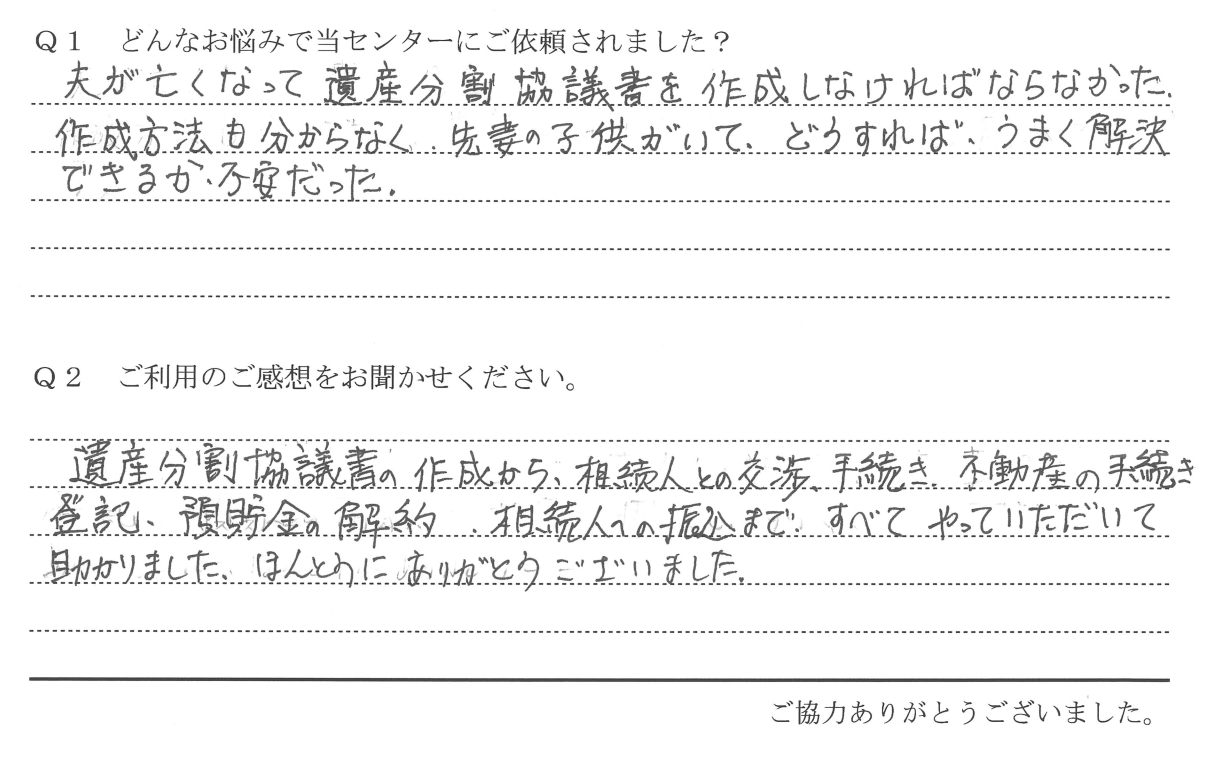 Q1　どんなお悩みで当センターにご依頼されました？
夫が亡くなって遺産分割協議書を作成しなければならなかった.
作成方法も分からなく、先妻の子供がいて、どうすれば、うまく解決
できるか、不安だった.
Q2　ご利用のご感想をお聞かせください。
遺産分割協議書の作成から、相続人との交渉、手続き、不動産の手続き
登記、預貯金の解約、相続人への振込まで、すべてやっていただいて
助かりました、ほんとうにありがとうございました.
ご協力ありがとうございました。